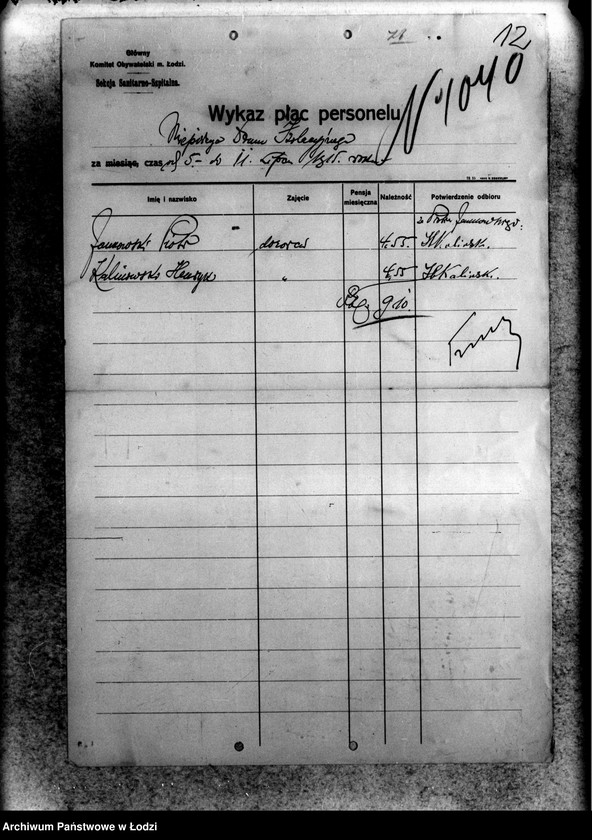 12
Główny
Komitet Obywatelski m. Łodzi.
Sekcja Sanitarno-Szpitalna.
N 1040
Wykaz płac personelu
Miejskiego Domu Izolacyjnego
za miesiąc, czas od 5 - do 11. Lipca
Imię i nazwisko Zajęcie Pensja miesięczna Należność Potwierdzenie odbioru
za Piotra Janowskiego:
Janowski Piotr dozorca 4,55. H Kalinowsk.
Kalinowski Henryk " 4,55 H Kalinowsk.
Rb. 9 10.
Archiwum Państwowe w Łodzi